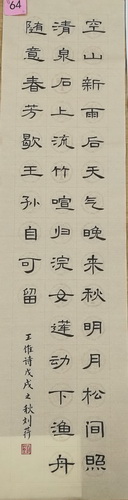 64
空山新雨后天气晚来秋明月松间照
清泉石上流竹喧归浣女莲动下渔舟
随意春芳歇王孙自可留
王维诗戊戌之秋刘